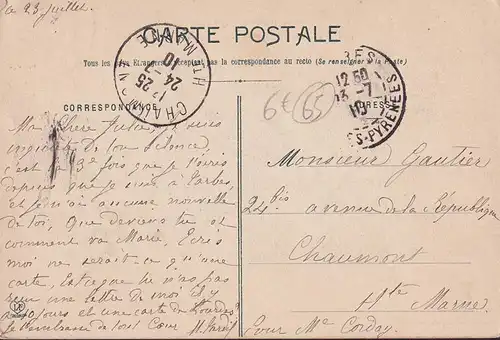 ce 23 juillet
CARTE POSTALE
Tous les pays Etrangers acceptent pas la correspondance au recto (Se renseigner à la Poste)
CHAUMONT
Hte MARNE
12 25
24-7
10
12 50
-7
10
S-PYRENEES
6€ 65
CORRESPONDANCE
ADRESSE
Ma chère je suis
inquiète de ton silence,
c'est la 3e fois que je t'écris
depuis que je suis à Tarbes,
et je n'ai aucune nouvelle
de toi, Que deviens tu et
comment va Marie, Ecris
moi ne serait-ce qu'une
carte, Est-ce que tu n'as pas
reçu une lettre de moi il y
a 10 jours et une carte de Lourdes
Je t'embrasse de tout Cœur
Monsieur Gautier
24 bis avenue de la République
Chaumont
Hte Marne
Pour Me Corday